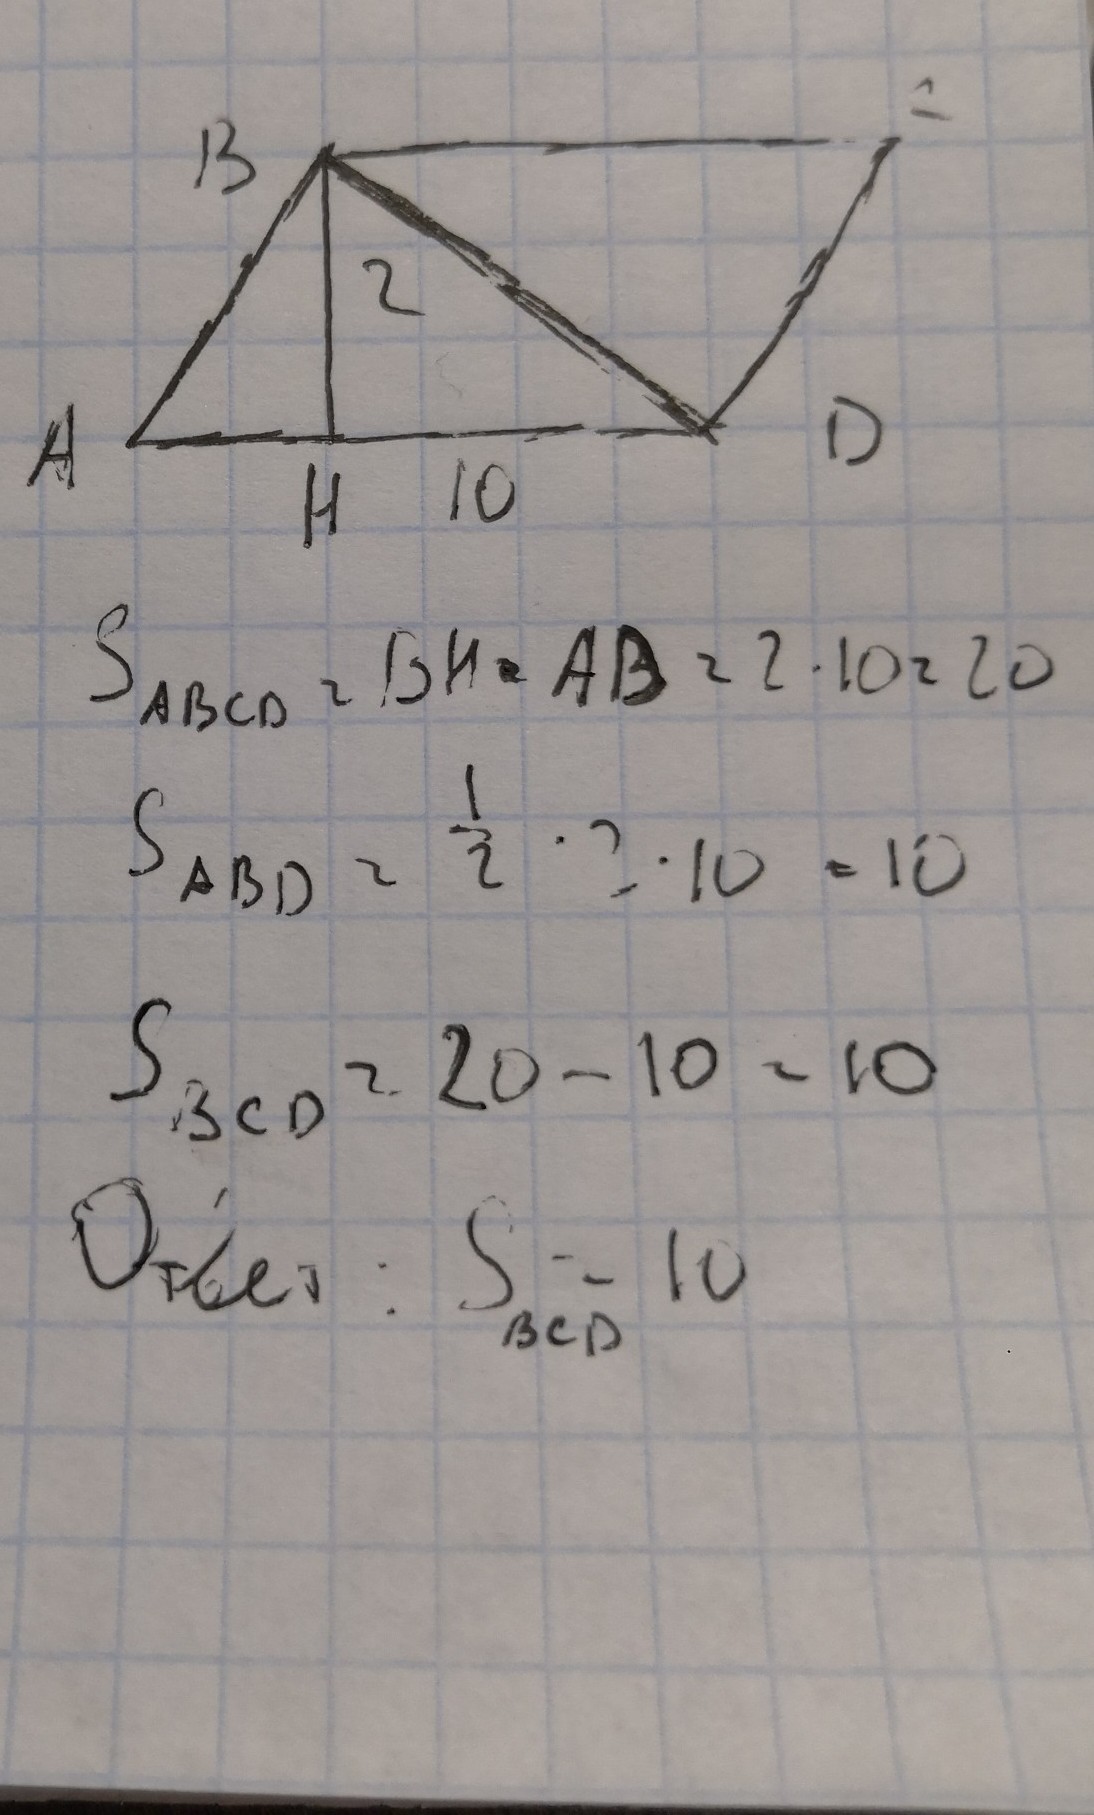 B
2
A
D
H 10
S ABCD = BH · AB = 2 · 10 = 20
S ABD = 1/2 · 2 · 10 = 10
S BCD = 20 - 10 = 10
Ответ: S BCD = 10